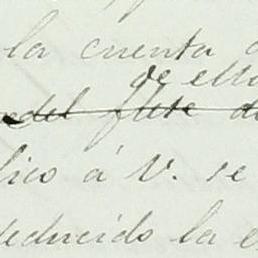 la cuenta
de ello
del flete
lico á V. se
deducido la